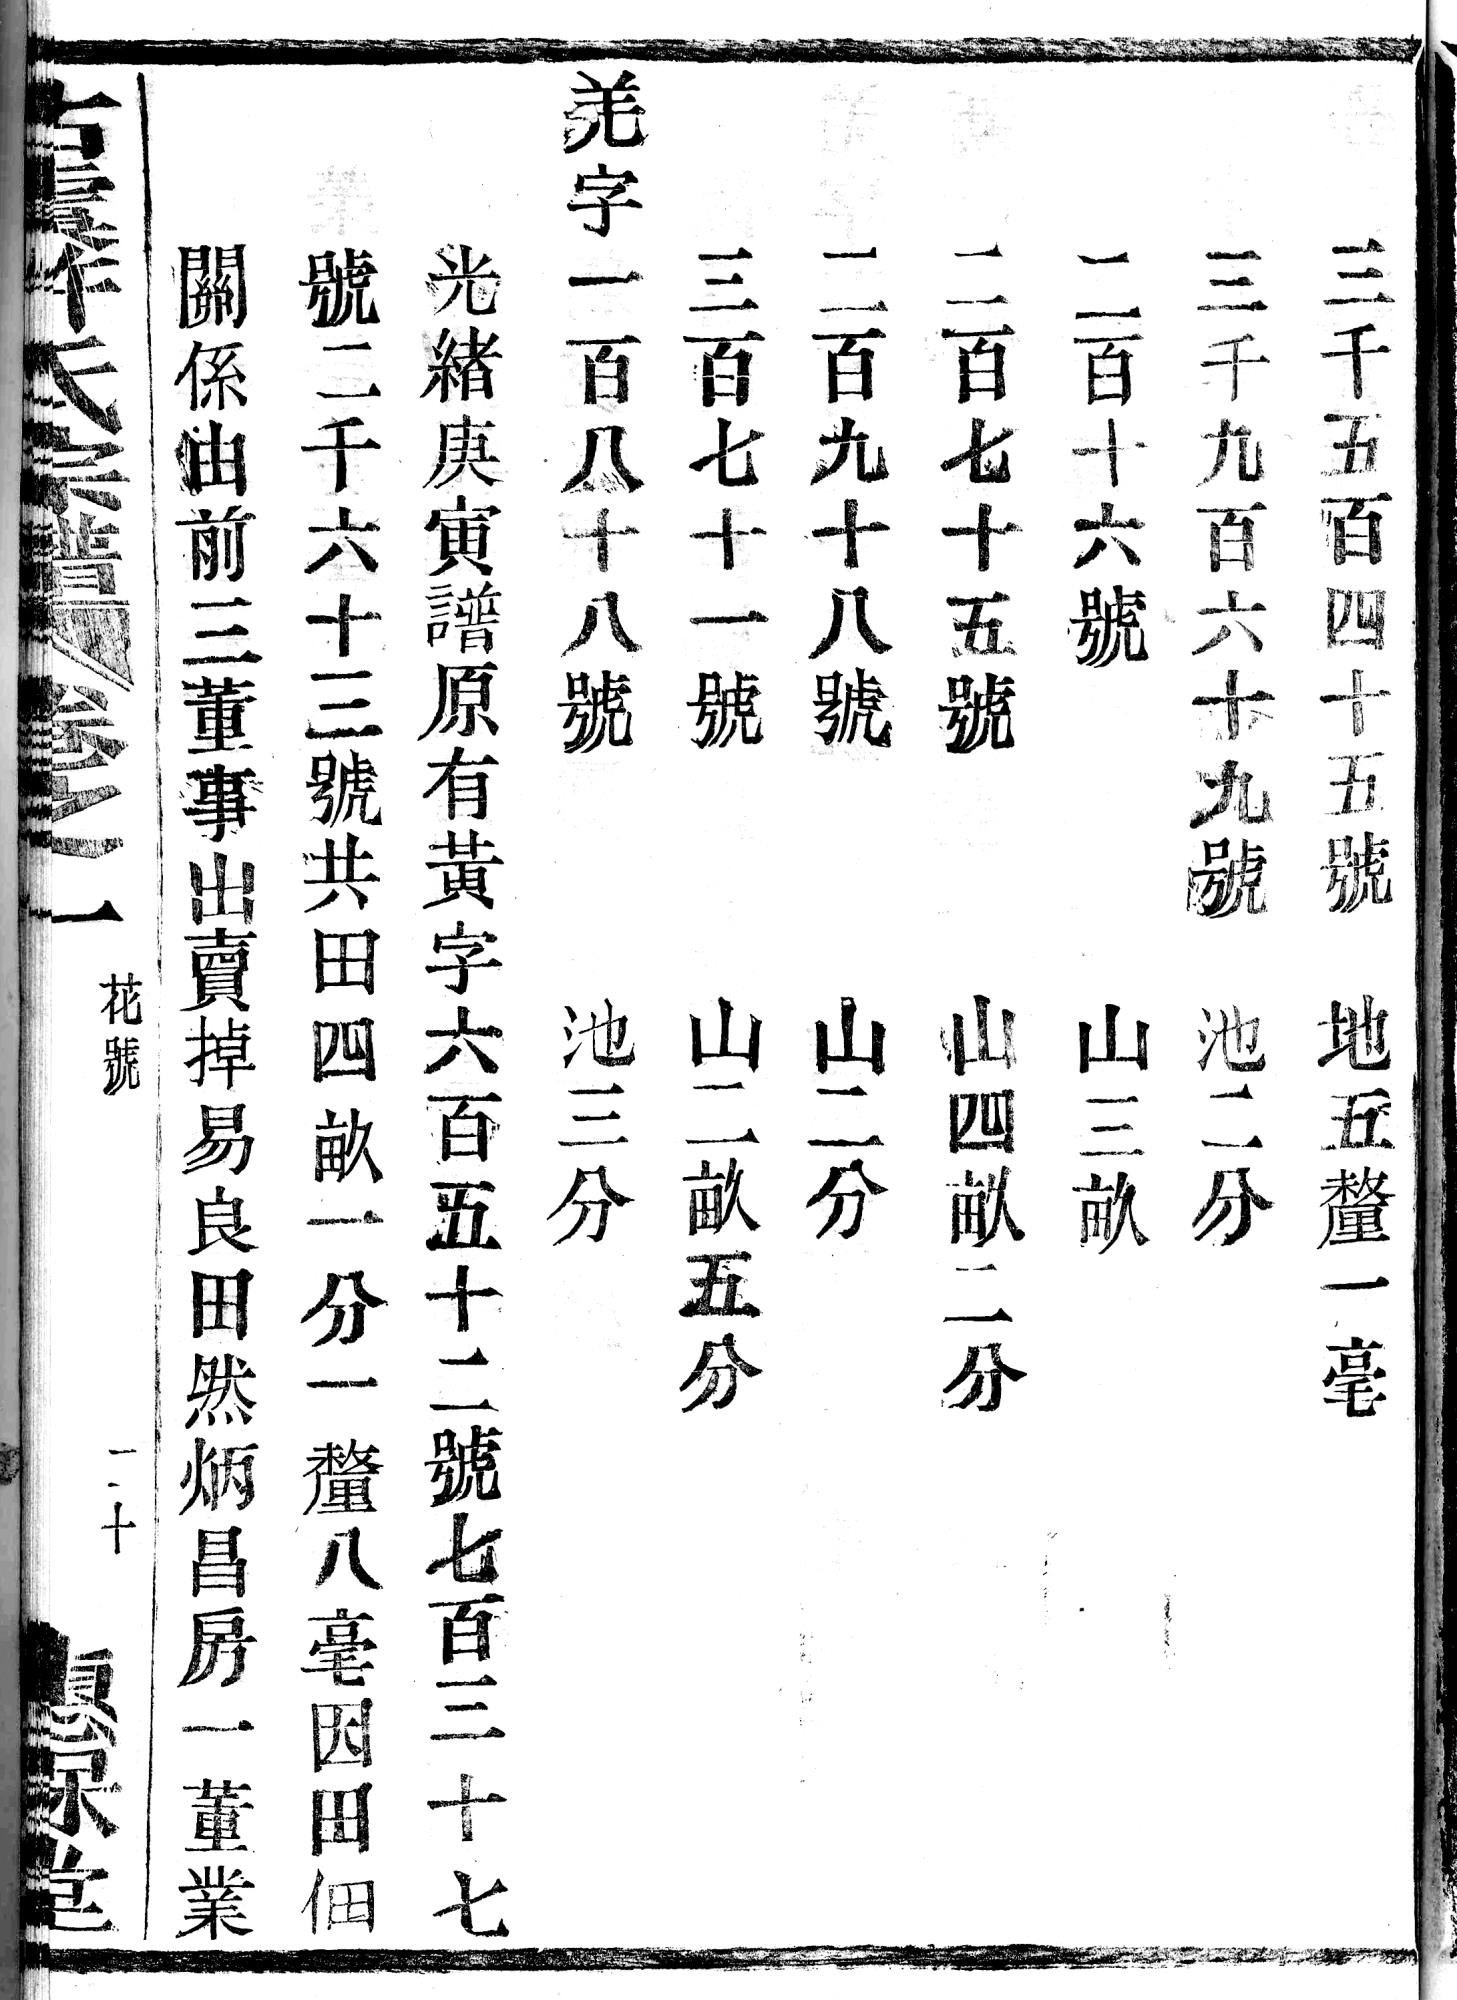 三千五百四十五號 地五釐一毫
三千九百六十九號 池二分
二百十六號 山三畝
二百七十五號 山四畝二分
二百九十八號 山二分
三百七十一號 山二畝五分
羌字一百八十八號 池三分
光緒庚寅譜原有黃字六百五十二號七百三十七
號二千六十三號共田四畝一分一釐八毫因田佃
關係由前三董事出賣掉易良田然炳昌房一董業
氏宗譜 卷之一
花號
二十
堂